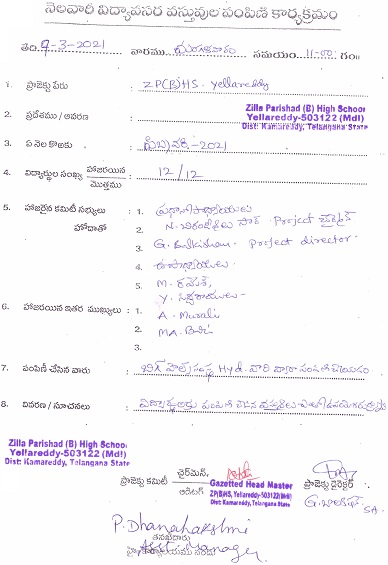 నెలవారీ విద్యావసర వస్తువుల పంపిణీ కార్యక్రమం
తేది. 9-3-2021 వారము మంగళవారం సమయం 11-00 గం॥
1. ప్రాజెక్టు పేరు : ZP(B)HS - Yellareddy
Zilla Parishad (B) High School
Yellareddy-503122 (Mdl)
Dist: Kamareddy, Telangana State
2. ప్రదేశము / ఆవరణ :
3. ఏ నెల కొఱకు : ఫిబ్రవరి-2021
4. విద్యార్థుల సంఖ్య హాజరయిన / మొత్తము : 12/12
5. హాజరైన కమిటీ సభ్యులు : 1. ప్రధానోపాధ్యాయులు
హోదాతో 2. N. సార్ - Project
3. G. Balkishan - Project director
4. ఉపాధ్యాయులు -
5. M. రమేశ్,
Y.
6. హాజరయిన ఇతర ముఖ్యులు : 1. A. Murali
2. MA. Basi
3.
7. పంపిణీ చేసిన వారు : సంస్థ Hyd. వారి ద్వారా పంపిణీ చేయడం
8. వివరణ / సూచనలు : విద్యార్థులకు పంపిణీ చేసిన వస్తువులు
Zilla Parishad (B) High School
Yellareddy-503122 (Mdl)
Dist: Kamareddy, Telangana State
ప్రాజెక్టు కమిటీ చైర్‌మెన్, / ఆడిటర్
Gazetted Head Master
ZP(B)HS, Yellareddy-503122(Mdl)
Kamareddy, Telangana State
ప్రాజెక్టు డైరెక్టర్
G. బాలకిషన్ SA.
P. Dhanalakshmi
తనఖీదారు
Asst Manager